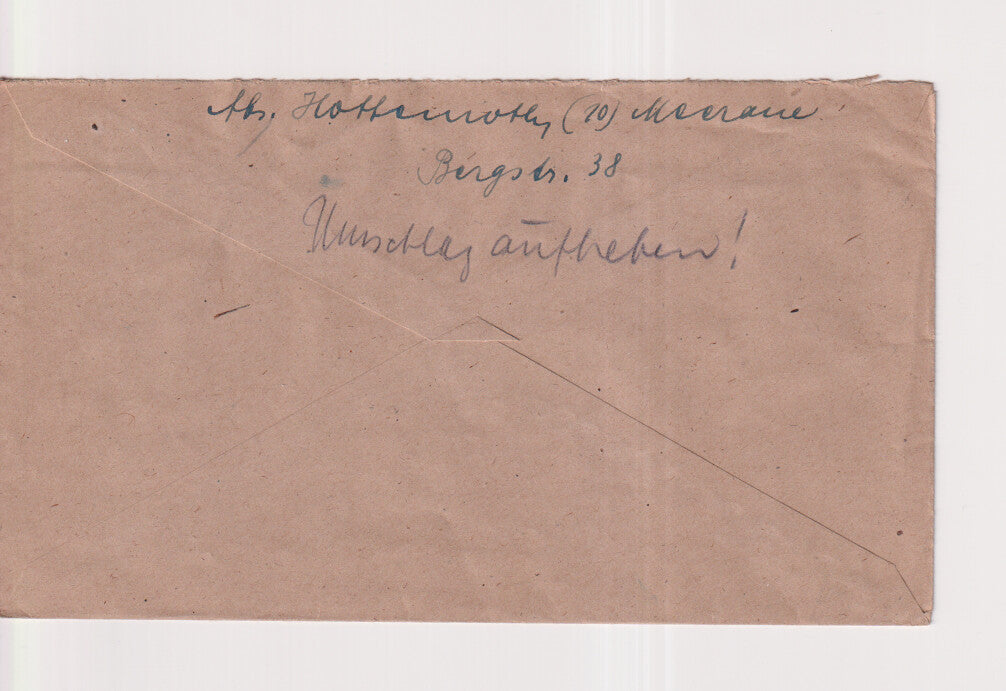 Abs. Hottenroth, (10) Meerane
Bergstr. 38
Umschlag aufheben!